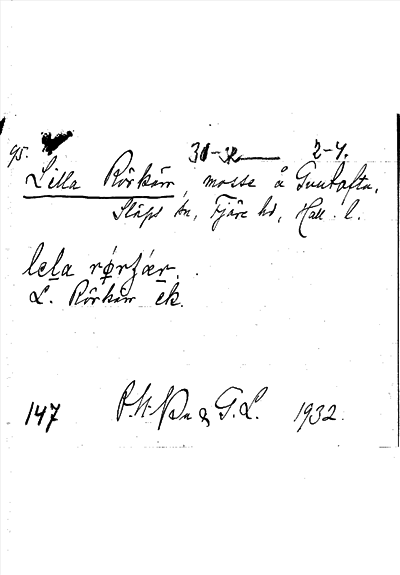 95. 31-32 2-4.
Lilla Rörkärr, mosse å Gunntofta,
Släps sn, Fjäre hd, Hall. l.
lela rørhær.
L. Rörkärr ek.
147 P.N. & G.L. 1932.